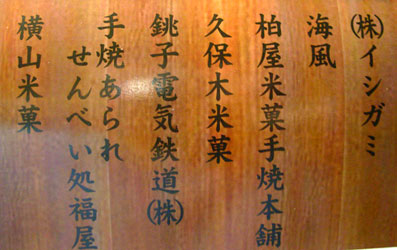 ㈱イシガミ
海風
柏屋米菓手焼本舗
久保木米菓
銚子電気鉄道㈱
手焼あられ
せんべい処福屋
横山米菓